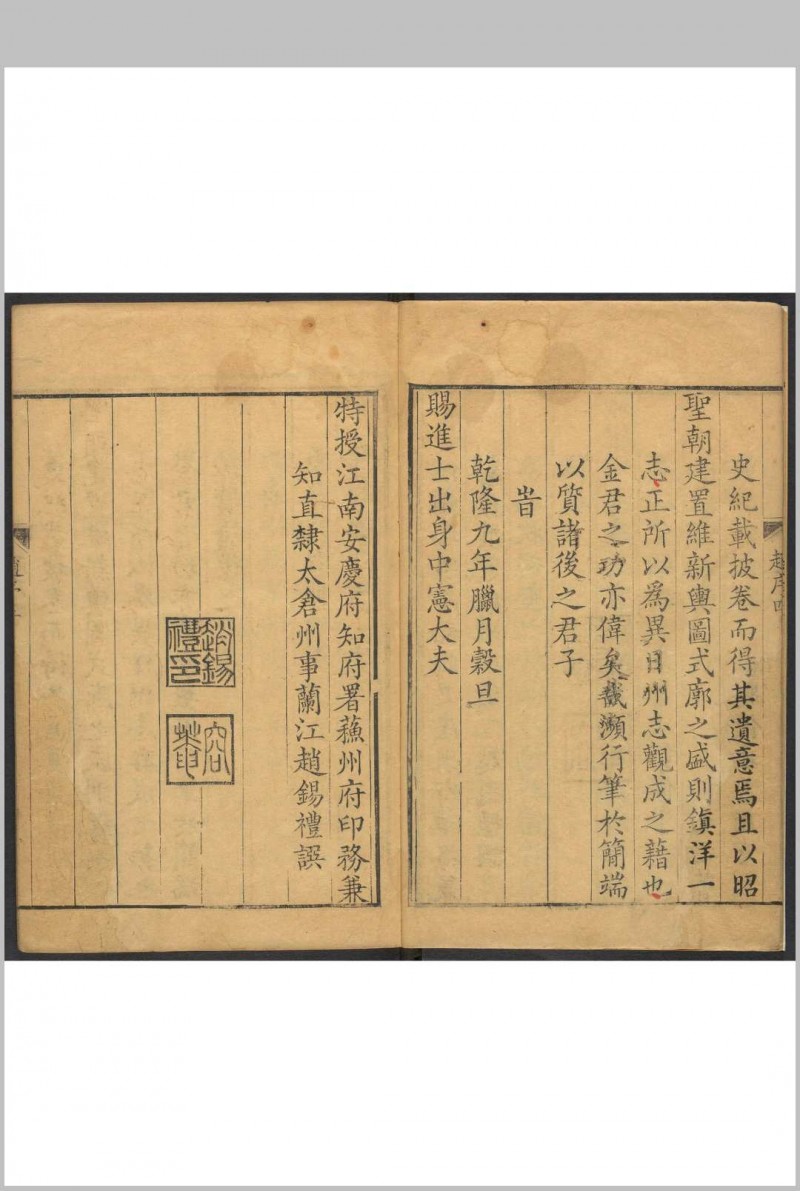 史紀載披卷而得其遺意焉且以昭
聖朝建置維新輿圖式廓之盛則鎮洋一
志正所以為異日州志觀成之藉也
金君之功亦偉矣哉瀕行筆於簡端
以質諸後之君子
旹
乾隆九年臘月穀旦
賜進士出身中憲大夫
特授江南安慶府知府署蘓州府印務兼
知直隸太倉州事蘭江趙錫禮譔
趙錫禮印
趙序四